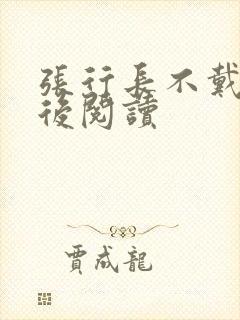 張行長不戴
後閱讀
賈成龍